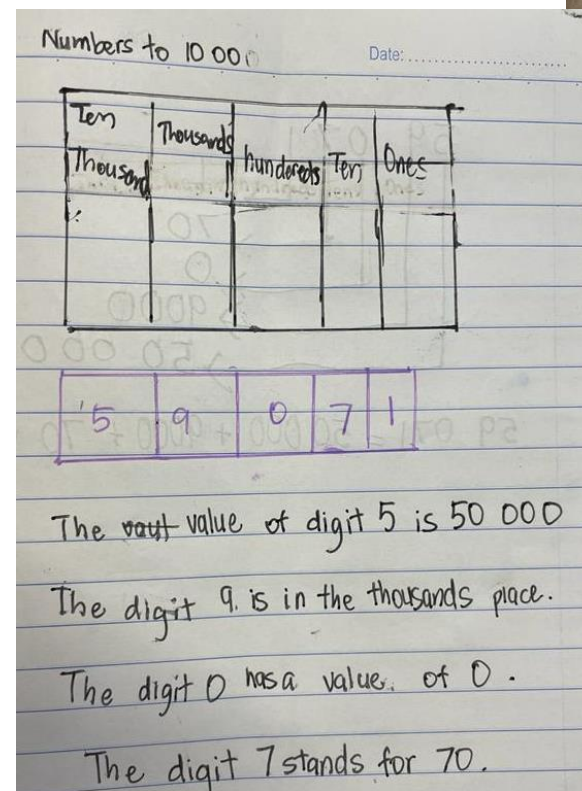 Numbers to 10 000
Date:
Ten Thousand Thousands hundereds Ten Ones
5 9 0 7 1
The vaut value of digit 5 is 50 000
The digit 9. is in the thousands place.
The digit 0 has a value. of 0.
The digit 7 stands for 70.